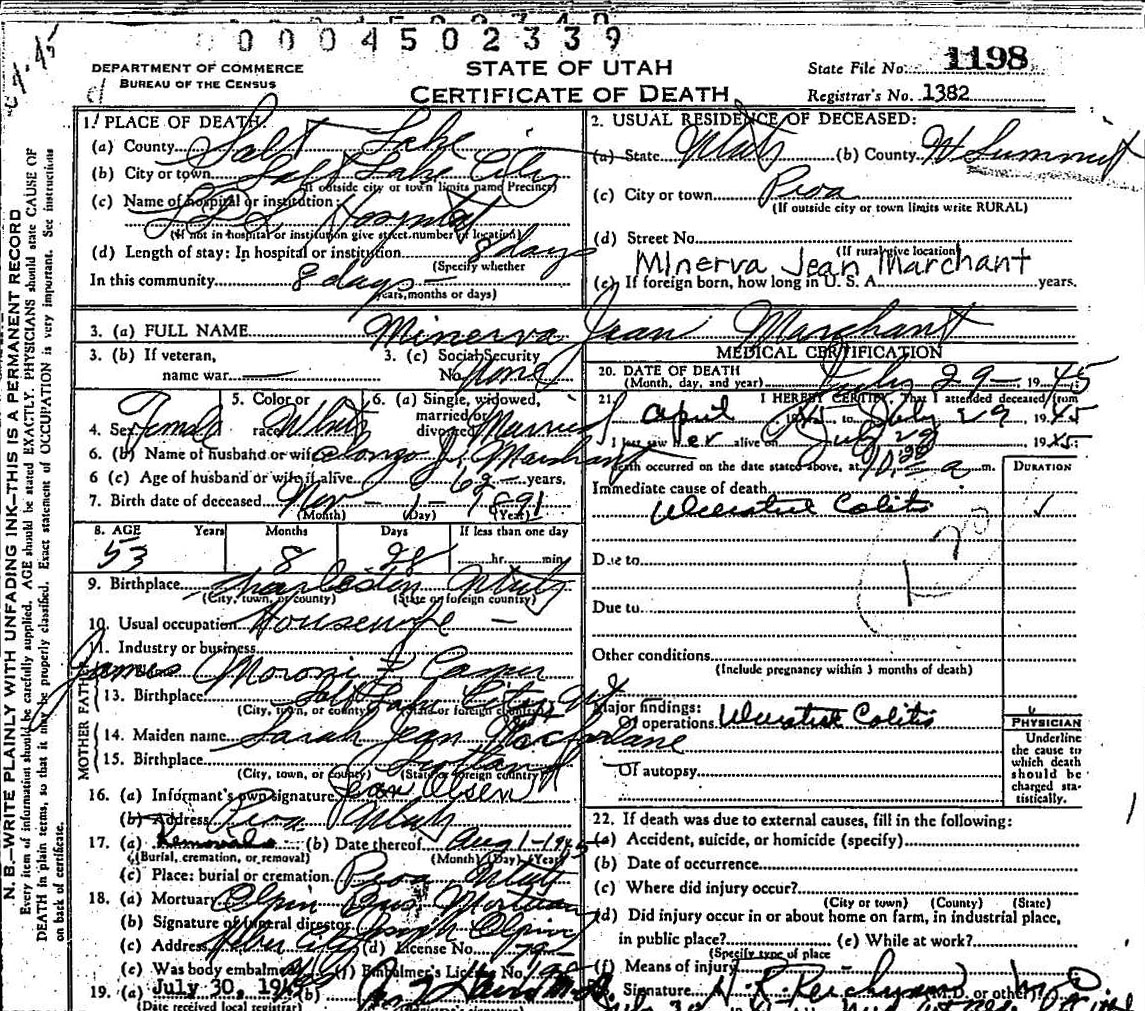 0004502339
DEPARTMENT OF COMMERCE
BUREAU OF THE CENSUS
STATE OF UTAH
CERTIFICATE OF DEATH
State File No. 1198
Registrar's No. 1382
N. B.—WRITE PLAINLY WITH UNFADING INK—THIS IS A PERMANENT RECORD
Every item of information should be carefully supplied. AGE should be stated EXACTLY. PHYSICIANS should state CAUSE OF
DEATH in plain terms, so that it may be properly classified. Exact statement of OCCUPATION is very important. See instructions
on back of certificate.
1. PLACE OF DEATH:
(a) County Salt Lake
(b) City or town Salt Lake City
(If outside city or town limits name Precinct)
(c) Name of hospital or institution:
L.D.S. Hospital
(If not in hospital or institution give street number or location)
(d) Length of stay: In hospital or institution 8 days
(Specify whether
In this community 8 days
years, months or days)
2. USUAL RESIDENCE OF DECEASED:
(a) State Utah (b) County Summit
(c) City or town Peoa
(If outside city or town limits write RURAL)
(d) Street No.
(If rural give location)
Minerva Jean Marchant
(e) If foreign born, how long in U. S. A. years.
3. (a) FULL NAME Minerva Jean Marchant
3. (b) If veteran, name war —
3. (c) Social Security No. None
4. Sex Female
5. Color or race White
6. (a) Single, widowed, married or divorced Married
6. (b) Name of husband or wife Alonzo J. Marchant
6 (c) Age of husband or wife if alive 62 years.
7. Birth date of deceased Nov - 1 - 1891
(Month) (Day) (Year)
8. AGE Years Months Days If less than one day
53 8 28 hr. min.
9. Birthplace Charleston Utah
(City, town, or county) (State or foreign country)
10. Usual occupation Housewife —
11. Industry or business
James Moroni Casper
13. Birthplace Salt Lake City Ut
(City, town, or county) (State or foreign country)
FATHER
MOTHER
14. Maiden name Sarah Jean Macfarlane
15. Birthplace Scotland
(City, town, or county) (State or foreign country)
16. (a) Informant's own signature Jean Olsen
(b) Address Peoa Utah
17. (a) Removal (b) Date thereof Aug 1 - 1945
(Burial, cremation, or removal) (Month) (Day) (Year)
(c) Place: burial or cremation Peoa Utah
18. (a) Mortuary Olpin Bros Mortuary
(b) Signature of funeral director Joseph Olpin
(c) Address (d) License No.
(e) Was body embalmed (f) Embalmer's License No.
19. (a) July 30, 1945 (b)
(Date received local registrar)
MEDICAL CERTIFICATION
20. DATE OF DEATH
(Month, day, and year) July 29 - 1945
21. I HEREBY CERTIFY, That I attended deceased from
April 1945, to July 29, 1945
I last saw her alive on July 29 1945;
death occurred on the date stated above, at a m.
DURATION
Immediate cause of death
Ulcerative Colitis
Due to
Due to
Other conditions
(Include pregnancy within 3 months of death)
Major findings:
Of operations Ulcerative Colitis
Of autopsy
PHYSICIAN
Underline
the cause to
which death
should be
charged sta-
tistically.
22. If death was due to external causes, fill in the following:
(a) Accident, suicide, or homicide (specify)
(b) Date of occurrence
(c) Where did injury occur?
(City or town) (County) (State)
(d) Did injury occur in or about home on farm, in industrial place,
in public place? (e) While at work?
(Specify type of place
(f) Means of injury
Signature (M.D. or other)